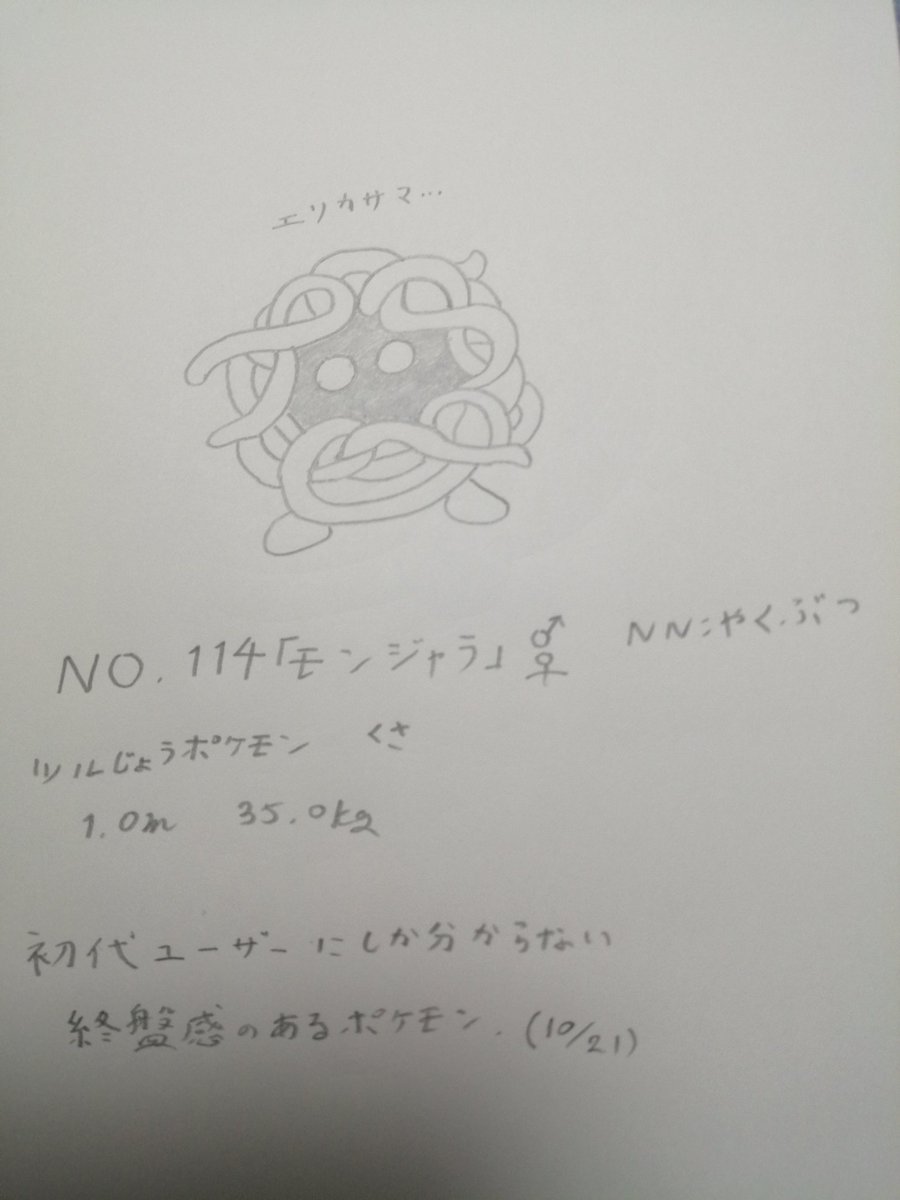 エリカサマ…
NO.114「モンジャラ」♂♀ NN:やくぶつ
ツルじょうポケモン くさ
1.0m 35.0kg
初代ユーザーにしか分からない
終盤感のあるポケモン.(10/21)